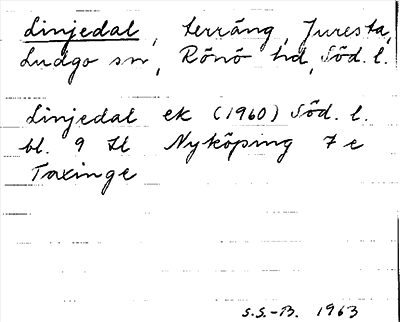 Linjedal, terräng, Juresta,
Ludgo sn, Rönö hd, Söd. l.
Linjedal ek (1960) Söd. l.
bl. 9 H Nyköping 7 e
Taxinge
S.S.-B. 1963